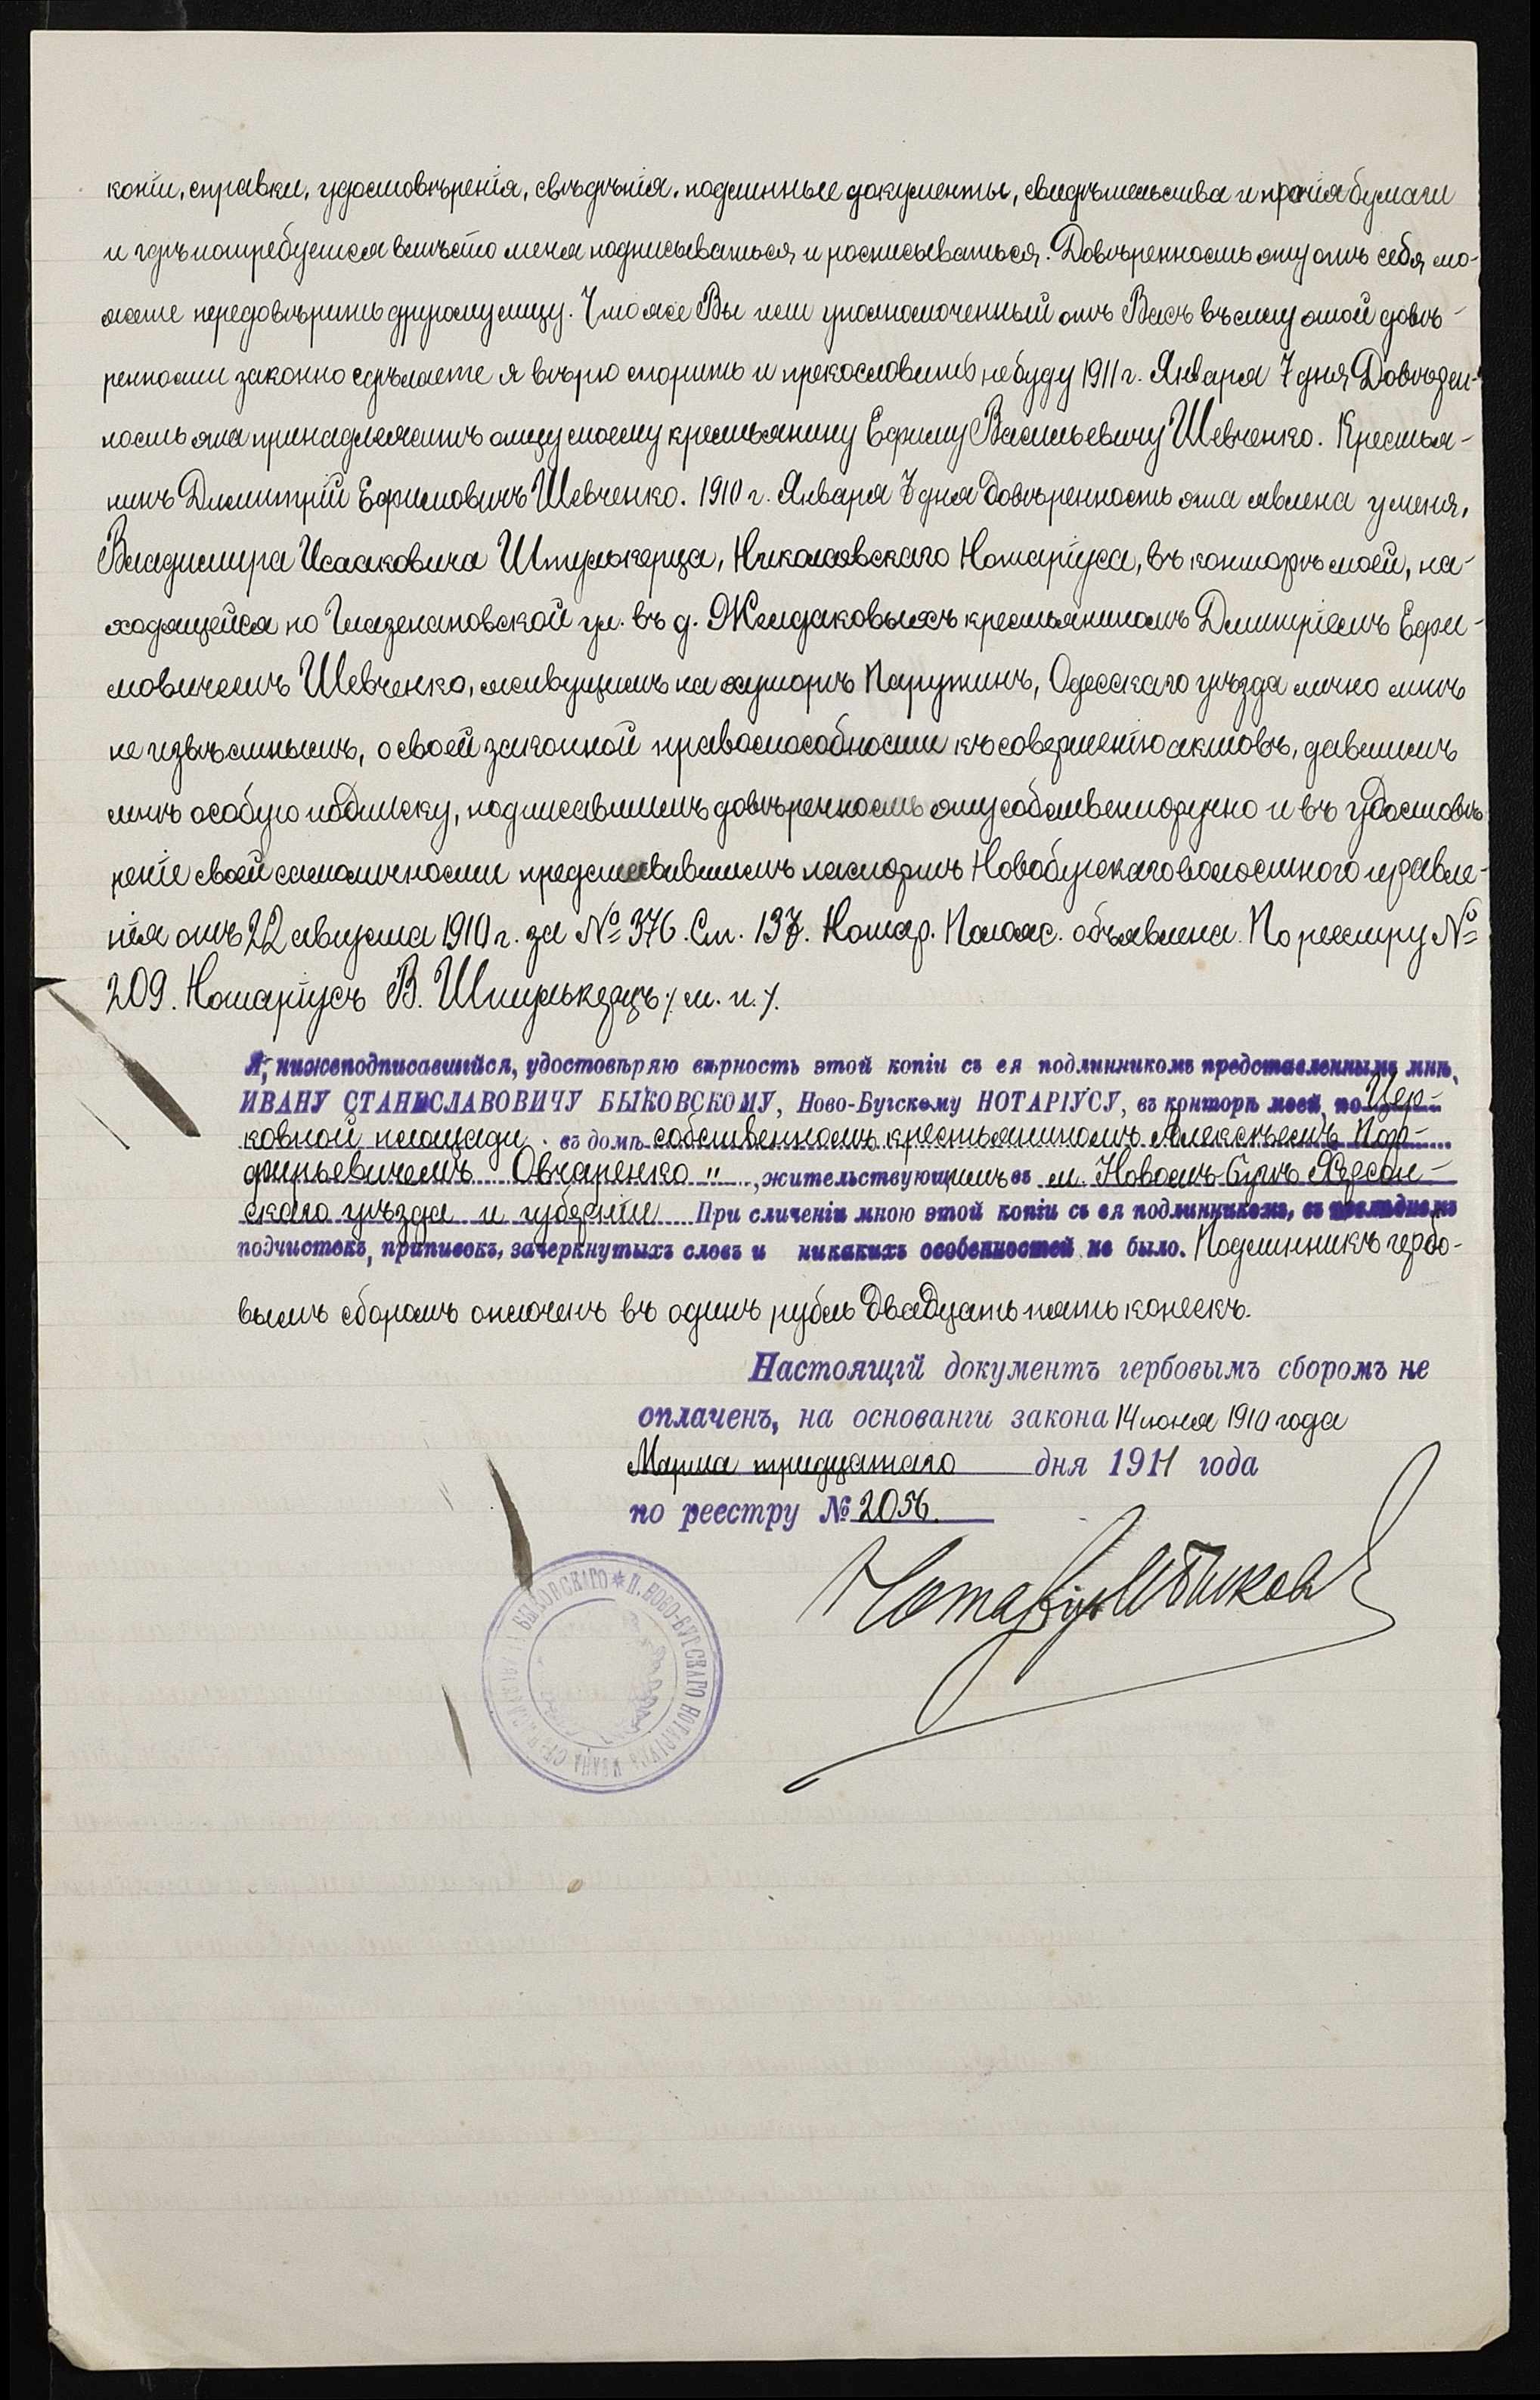 копіи, справки, удостовѣренія, свѣдѣнія, подлинные документы, свидѣтельства и прочія бумаги
и гдѣ потребуется вмѣсто меня подписываться и росписываться. Довѣренность эту отъ себя мо-
жете передовѣрить другому лицу. Что же Вы или уполномоченный отъ Васъ въ силу этой довѣ-
ренности законно сдѣлаете я вѣрю спорить и прекословить не буду 1911 г. Января 7 дня Довѣрен-
ность эта принадлежитъ отцу моему крестьянину Ефиму Васильевичу Шевченко. Крестья-
нинъ Дмитрій Ефимовичъ Шевченко. 1910 г. Января 7 дня Довѣренность эта явлена у меня,
Владимира Исааковича Штулькерца, Николаевскаго Нотаріуса, въ конторѣ моей, на-
ходящейся по Глазенаповской ул. въ д. Жидаковыхъ крестьяниномъ Дмитріемъ Ефи-
мовичемъ Шевченко, живущимъ на хуторѣ Паружинѣ, Одесскаго уѣзда лично мнѣ
не извѣстнымъ, о своей законной правоспособности къ совершенію актовъ, давшимъ
мнѣ особую подписку, подписавшимъ довѣренность эту собственноручно и въ удостовѣ-
реніе своей самоличности представившимъ паспортъ Новобугскаго волостного правле-
нія отъ 22 августа 1910 г. за № 376. Ст. 137. Нотар. Полож. объявлена. По реестру №
209. Нотаріусъ В. Штулькерцъ /. м. п. /.
Я, нижеподписавшійся, удостовѣряю вѣрность этой копіи съ ея подлинникомъ представленнымъ мнѣ,
ИВАНУ СТАНИСЛАВОВИЧУ БЫКОВСКОМУ, Ново-Бугскому НОТАРІУСУ, въ конторѣ моей, по Цер-
ковной площади въ домѣ собственномъ крестьяниномъ Алексѣемъ Пор-
фирьевичемъ Овчаренко " , жительствующимъ въ м. Новомъ-Бугѣ Херсон-
скаго уѣзда и губерніи При сличеніи мною этой копіи съ ея подлинникомъ, въ послѣднемъ
подчистокъ, приписокъ, зачеркнутыхъ словъ и никакихъ особенностей не было. Подлинникъ гербо-
вымъ сборомъ оплоченъ въ одинъ рубль двадцать пять копеекъ.
Настоящій документъ гербовымъ сборомъ не
оплаченъ, на основаніи закона 14 июня 1910 года
Марта тридцатаго дня 1911 года
по реестру № 2056.
Нотаріусъ И Быков
* П. НОВО-БУГСКАГО НОТАРІУСА ИВАНА СТАНИСЛАВОВИЧА БЫКОВСКАГО